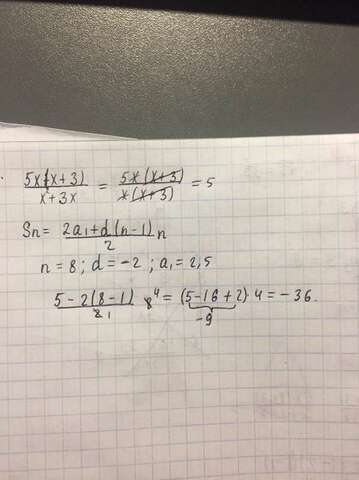 5x(x+3)/x+3x = 5x(x+3)/x(x+3) = 5
Sn = 2a₁+d(n-1)/2 n
n = 8 ; d = -2 ; a₁ = 2,5
5-2(8-1)/2 1 8 4 = (5-16+2) 4 = -36.
-9